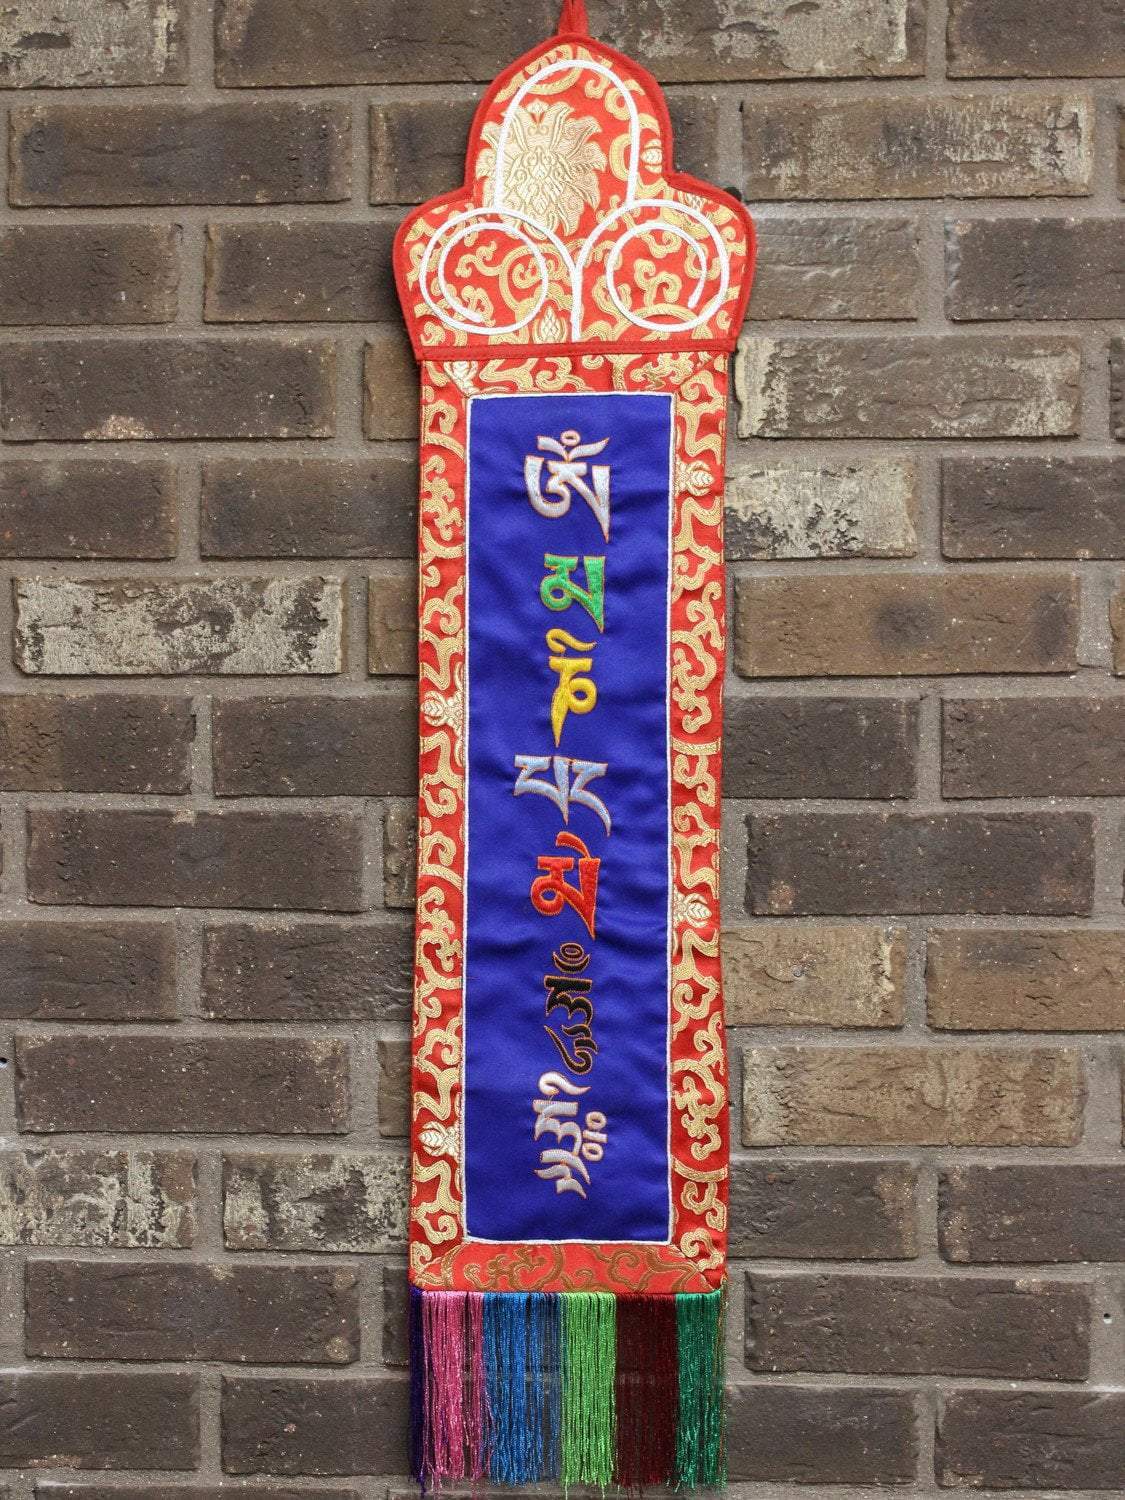 ཨོཾ མ ཎི པད མེ ཧཱུྃ ཧྲཱིཿ